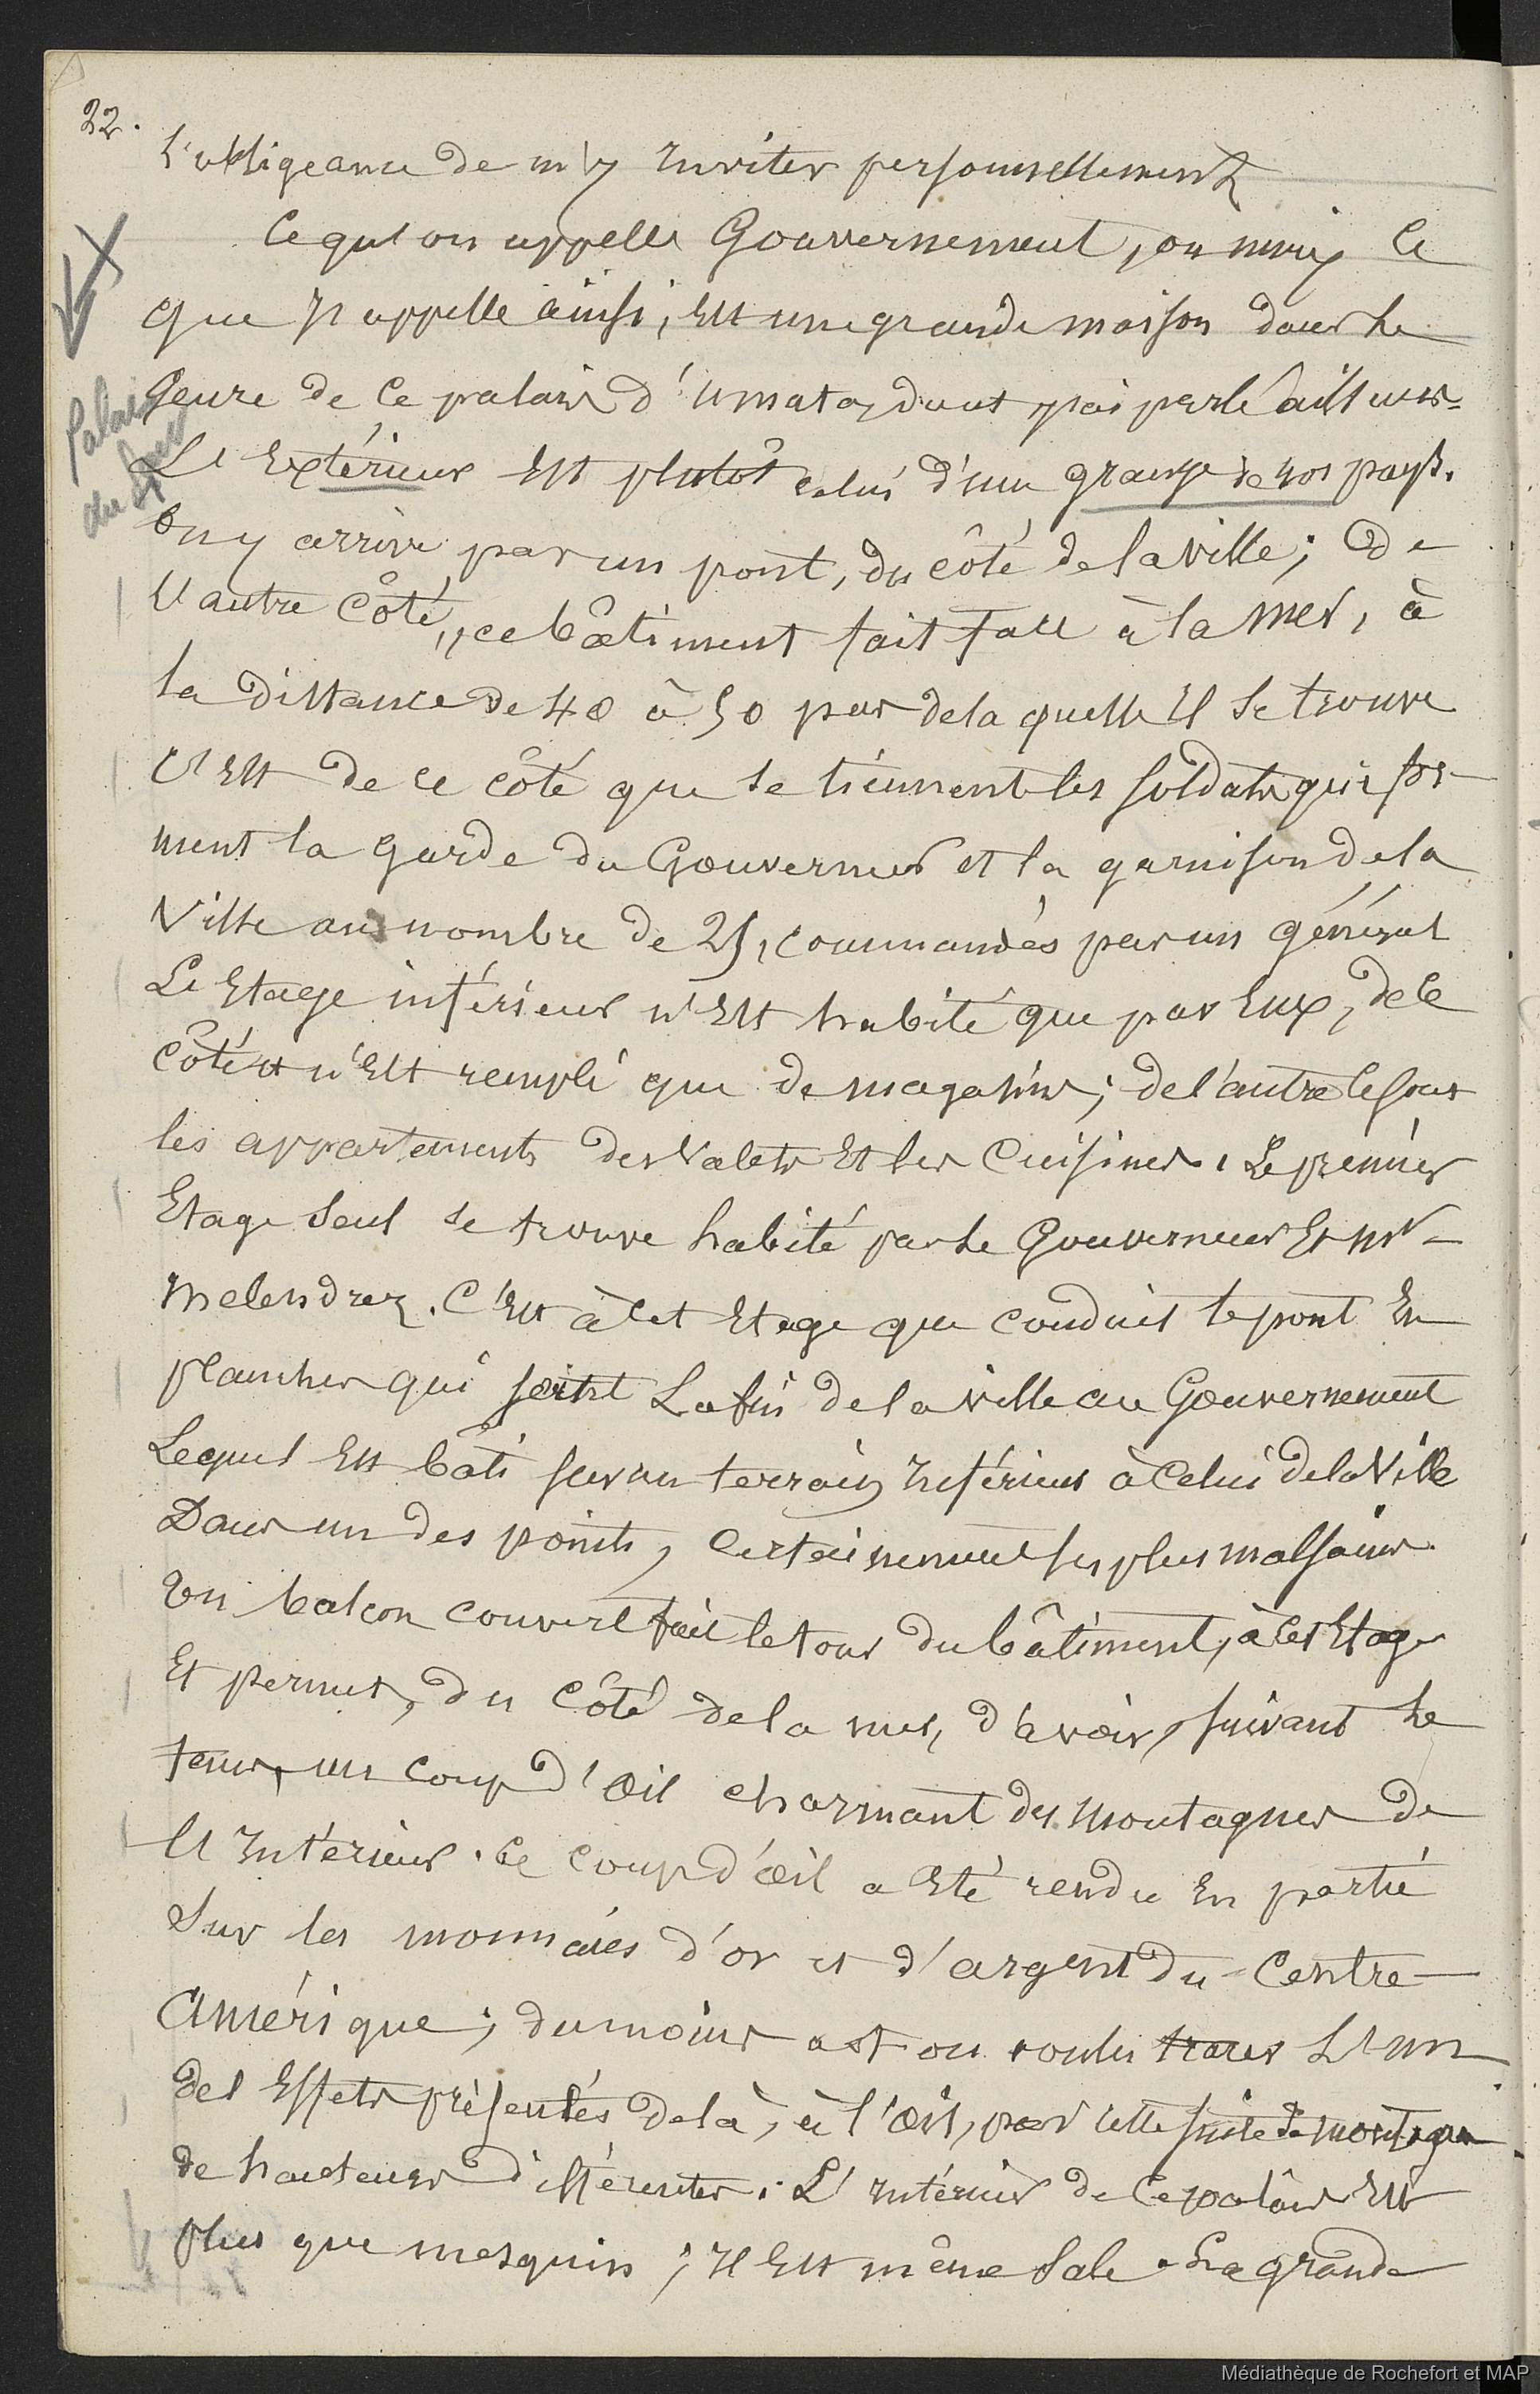 22.
l'obligeance de m'y inviter personnellement
Ce qu'on appelle Gouvernement, ou mieux ce
que j'appelle ainsi, est une grande maison dans le
genre de ce palais d'Umata, dont j'ai parlé ailleurs
Palais
du Gouv
L'extérieur est plutôt celui d'une grange de nos pays.
On y arrive par un pont, du côté de la ville; de
l'autre côté, ce bâtiment fait face à la mer, à
la distance de 40 à 50 pas de laquelle il se trouve
C'est de ce côté que se tiennent les soldats qui for-
ment la garde du Gouverneur et la garnison de la
Ville au nombre de 25, commandés par un général
Le Etage inférieur n'est habité que par eux, de ce
côté et n'est rempli que de magasins; de l'autre ce sont
les appartements des valets et les cuisines. Le premier
Etage seul se trouve habité par le Gouverneur et Mr
Melendrez. C'est à cet Etage que conduit le pont en
planches qui joint la fin de la ville au Gouvernement
Lequel est bâti sur un terrain inférieur à celui de la Ville
Dans un des points, certainement les plus malsains.
Un balcon couvert fait le tour du bâtiment, à cet Etage
Et permet, du côté de la mer, d'avoir, suivant le
tems, un coup d'oeil charmant des montagnes de
l'intérieur. Ce coup d'oeil a été rendu en partie
Sur les monnaies d'or et d'argent du Centre
Amérique; du moins a t on voulu tracer l'un
des Effets présentés de là, à l'oeil, par cette suite de montagnes
de hauteurs différentes. L'intérieur de ce palais est
plus que mesquin; il est même sale. La grande
Médiathèque de Rochefort et MAP